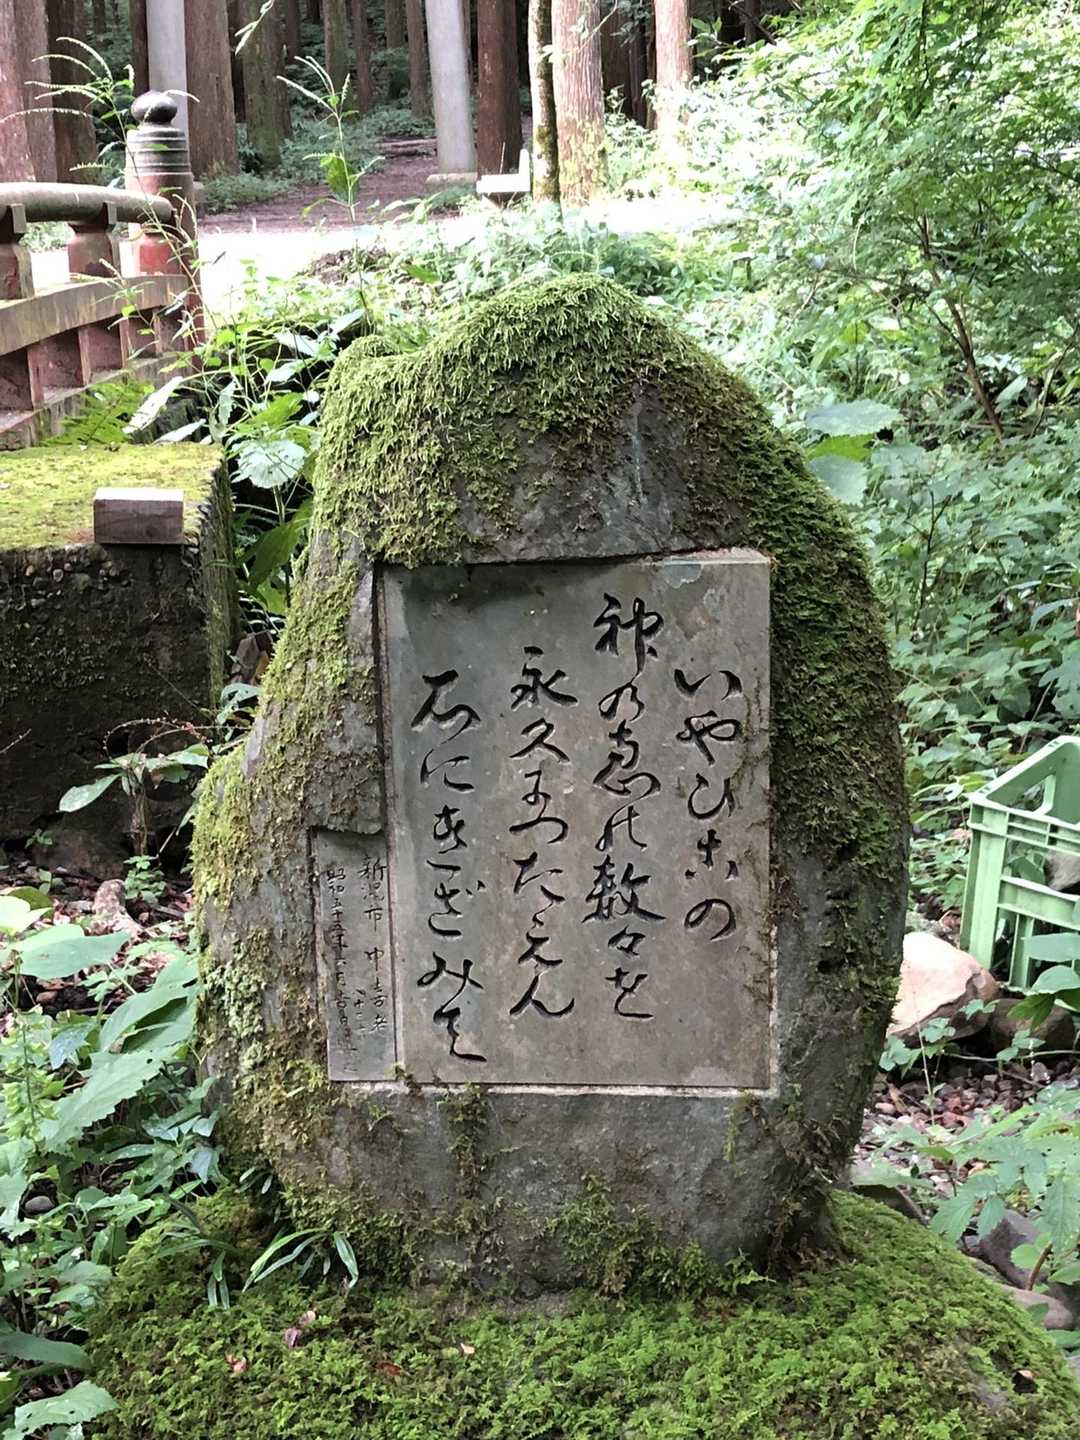 いやひこの
神の恵の数々を
永久につたえん
石にきざみて
新潟市 中
昭和五十五年六月吉日